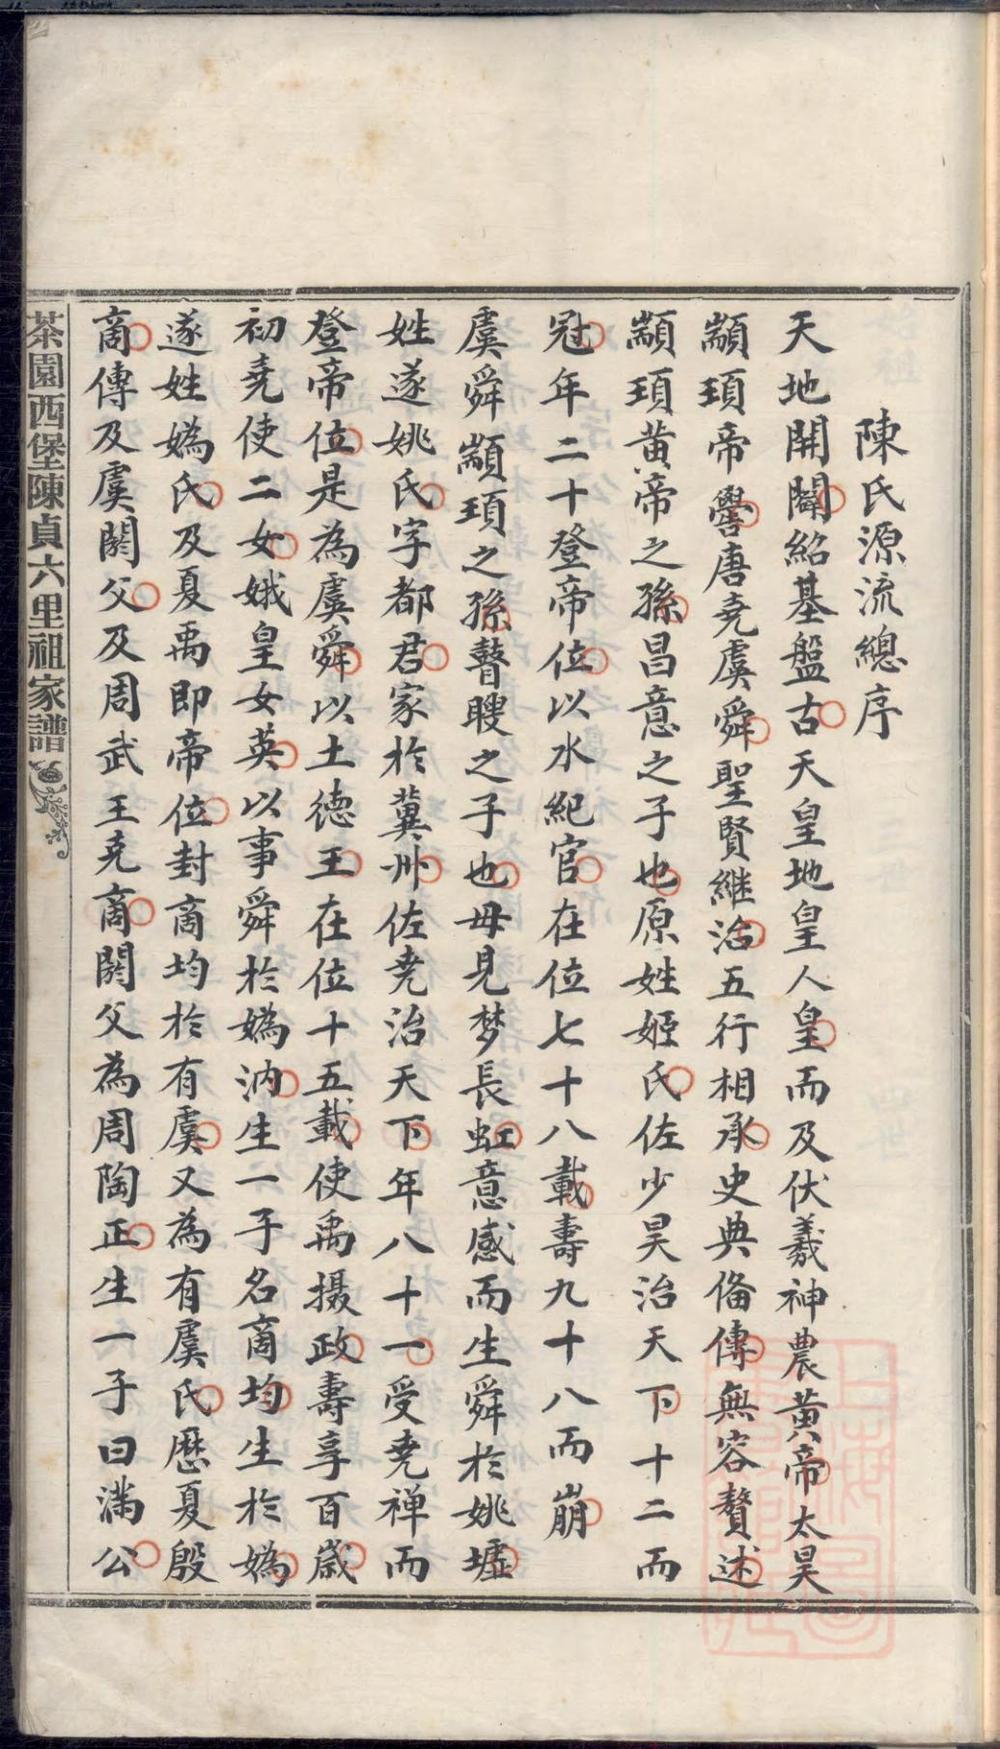 陳氏源流總序
天地開闢紹基盤古天皇地皇人皇而及伏羲神農黃帝太昊
顓頊帝嚳唐堯虞舜聖賢継治五行相承史典俻傳無容贅述
顓頊黃帝之孫昌意之子也原姓姬氏佐少昊治天下十二而
冠年二十登帝位以水紀官在位七十八載壽九十八而崩
虞舜顓頊之孫瞽瞍之子也母見梦長虹意感而生舜於姚墟
姓遂姚氏字都君家於冀州佐堯治天下年八十一受堯禅而
登帝位是為虞舜以土德王在位十五載使禹摄政壽享百歲
初堯使二女娥皇女英以事舜於媯汭生一子名商均生於媯
遂姓媯氏及夏禹即帝位封商均於有虞又為有虞氏歴夏殷
商傳及虞閼父及周武王克商閼父為周陶正生一子曰满公
茶園西堡陳貞六里祖家譜